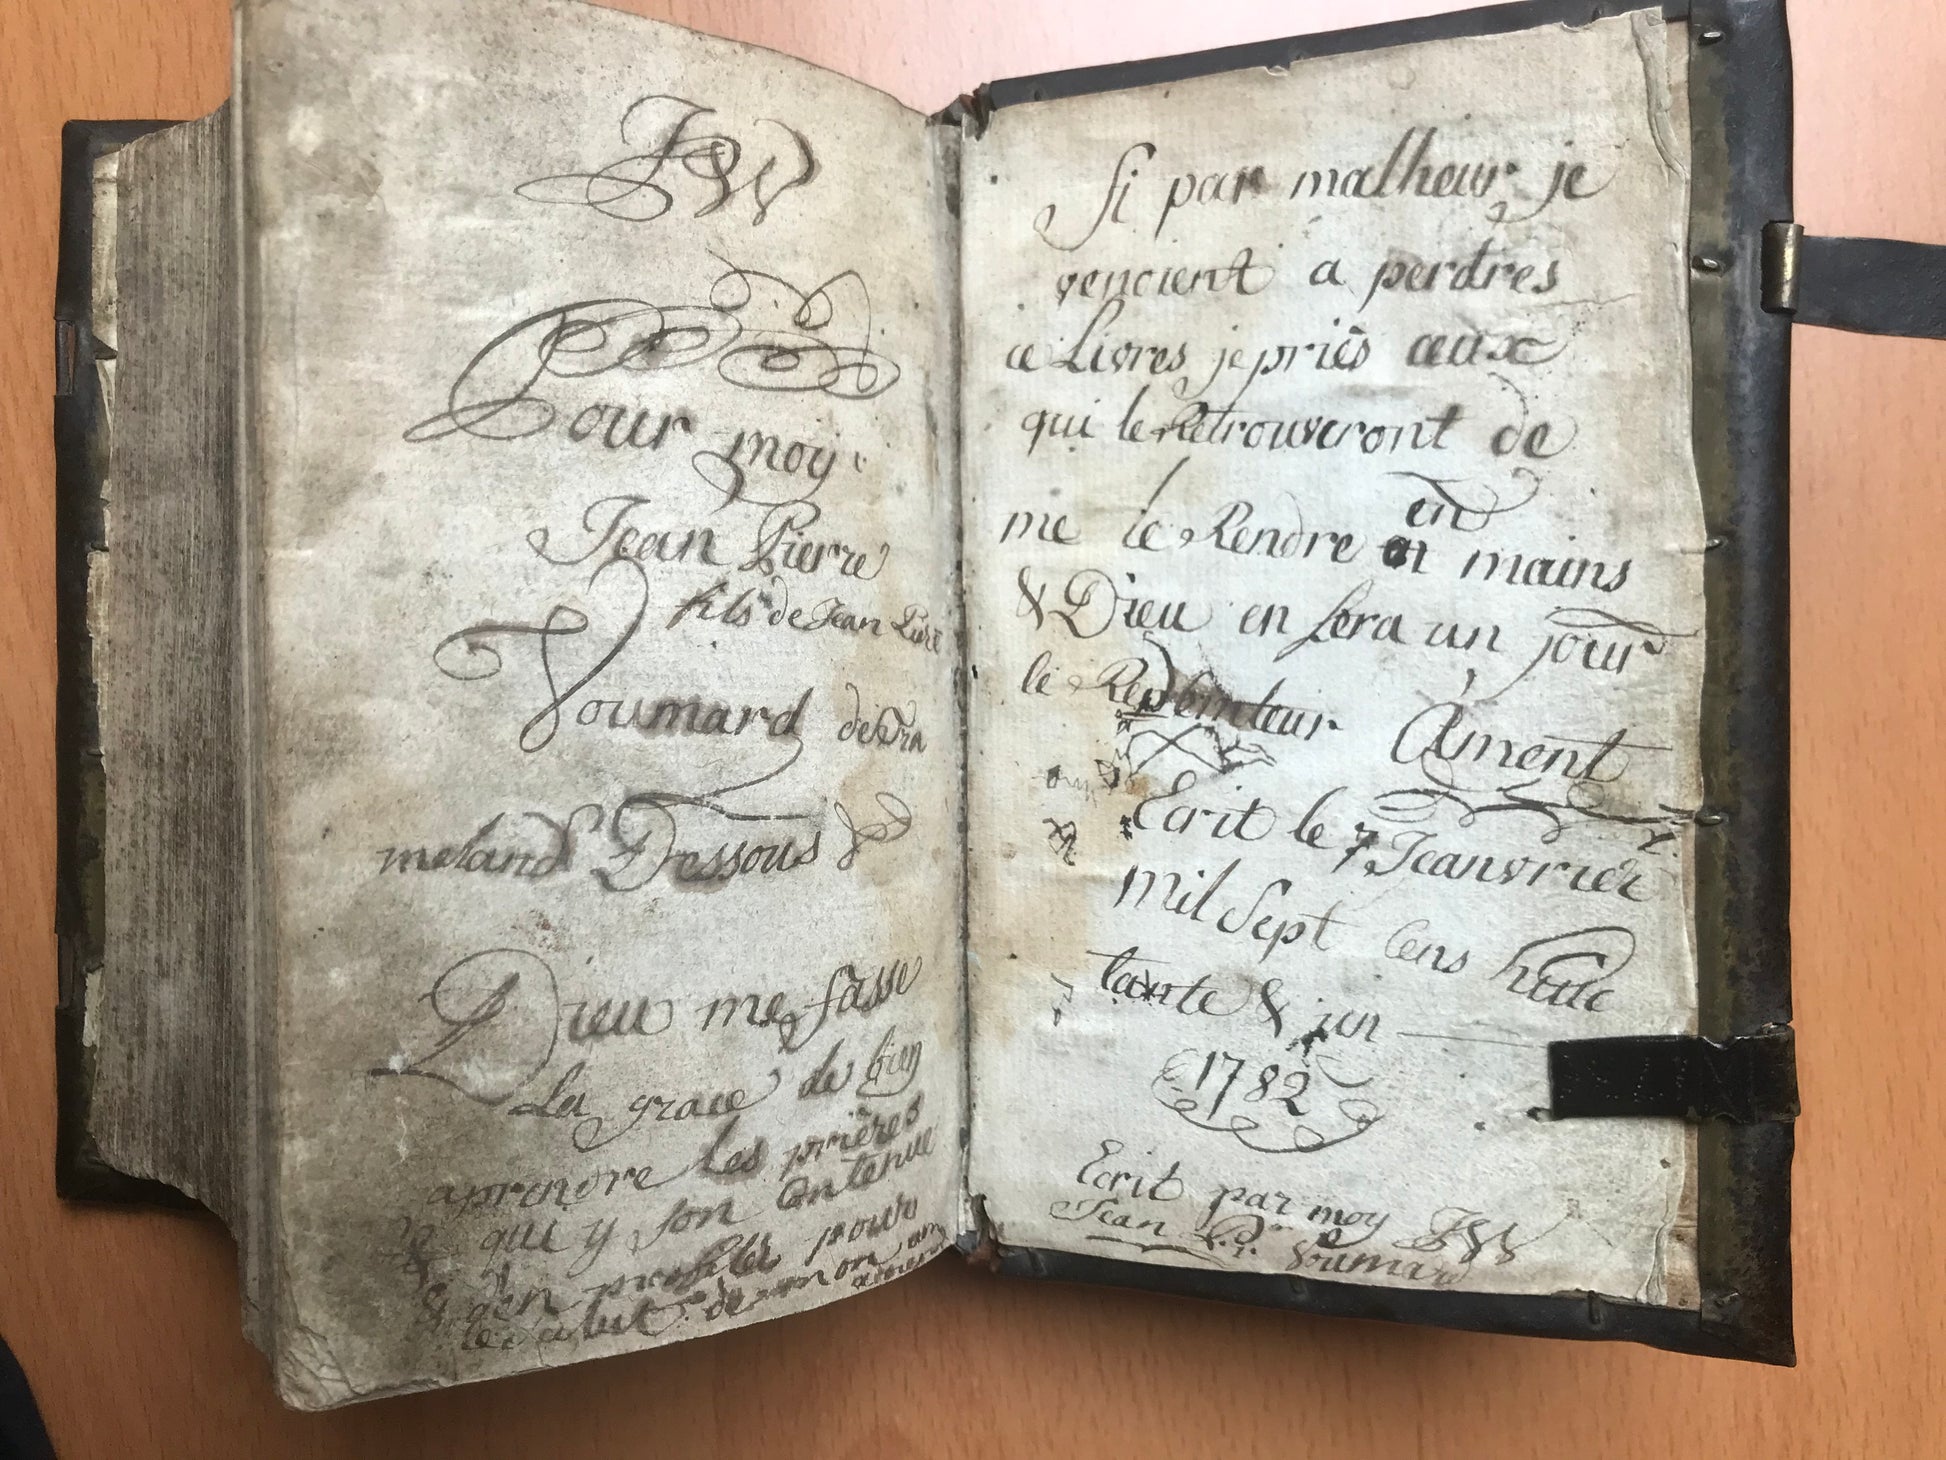 JPV
Pour moy
Jean Pierre
fils de Jean Piere
Voumard de Tra
meland Dessous
Dieu me fasse
La grace de bien
aprendre les prières
qui y son Contenue
& den profiter pour
le salut de mon ame
Si par malheur je
vencient a perdres
ce Livres je priès ceux
qui le Retrouveront de
en
me le Rendre en mains
& Dieu en sera un jour
le Ament
Ecrit le 7 Jeanvrier
mil Sept Cens huic
tante & un
1782
Ecrit par moy JPV
Jean P.re Voumard